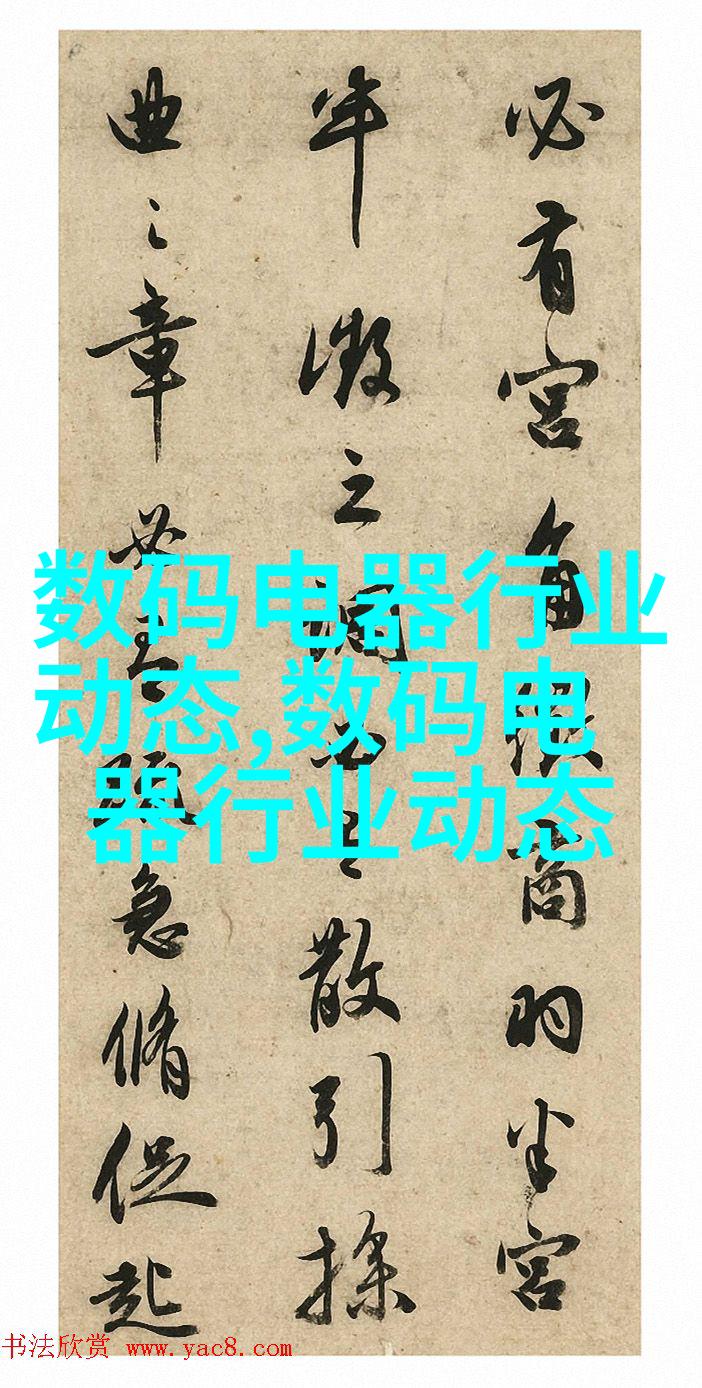 必有宫角徵商羽半宫
半徵之調必散引操
曲之章必急脩促起
数码电器行业
动态,数码电
器行业动态
书法欣赏 www.yac8.com